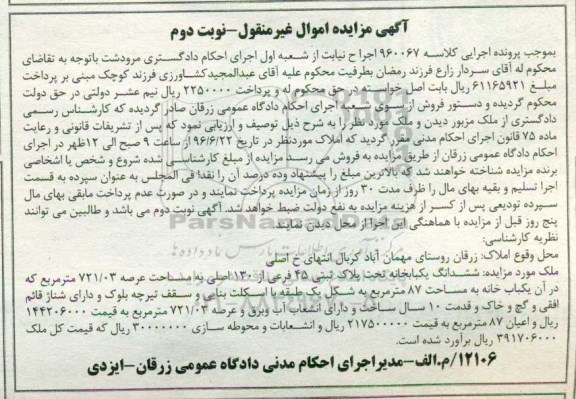 آگهی مزایده اموال غیرمنقول-نوبت دوم
بموجب پرونده اجرایی کلاسه ۹۶۰۰۶۷ اجرا ح نیابت از شعبه اول اجرای احکام دادگستری مرودشت باتوجه به تقاضای
محکوم له آقای سردار زارع فرزند رمضان بطرفیت محکوم علیه آقای عبدالمجید کشاورزی فرزند کوچک مبنی بر پرداخت
مبلغ ۶۱۱۶۵۹۲۱ ریال بابت اصل خواسته در حق محکوم له و پرداخت ۲۲۵۰۰۰۰ ریال نیم عشر دولتی در حق دولت
محکوم گردیده و دستور فروش از سوی شعبه اجرای احکام دادگاه عمومی زرقان صادر گردیده که کارشناس رسمی
دادگستری از ملک مزبور دیدن و ملک مورد نظر را به شرح ذیل توصیف و ارزیابی نمود که پس از تشریفات قانونی و رعایت
ماده ۷۵ قانون اجرای احکام مدنی مقرر گردید که املاک موردنظر در تاریخ ۹۶/۶/۲۲ از ساعت ۹ صبح الی ۱۲ظهر در اجرای
احکام دادگاه عمومی زرقان از طریق مزایده به فروش می رسد مزایده از مبلغ کارشناسی شده شروع و شخص یا اشخاصی
برنده مزایده شناخته خواهند شد که بالاترین مبلغ را پیشنهاد وده درصد آن را نقدا فی المجلس به عنوان سپرده به قسمت
اجرا تسلیم و بقیه بهای مال را ظرف مدت ۳۰ روز از زمان مزایده پرداخت نمایند و در صورت عدم پرداخت مابقی بهای مال
سپرده تودیعی پس از کسر از هزینه مزایده به نفع دولت ضبط خواهد شد. آگهی نوبت دوم می باشد و طالبین می توانند
پنج روز قبل از مزایده با هماهنگی این اجرا از محل دیدن نمایند.
نظریه کارشناسی:
محل وقوع املاک: زرقان روستای مهمان آباد کربال انتهای خ اصلی
ملک مورد مزایده: ششدانگ یکبابخانه تحت پلاک ثبتی ۴۵ فرعی از ۱۳۰ اصلی به مساحت عرصه ۷۲۱/۰۳ مترمربع که
در آن یکباب خانه به مساحت ۸۷ مترمربع به شکل یک طبقه با اسکلت بنایی و سقف تیرچه بلوک و دارای شناژ قائم
افقی و گچ و خاک و قدمت ۱۰ سال ساخت و دارای انشعاب آب وبرق و عرصه ۷۲۱/۰۳ مترمربع به قیمت ۱۴۴۲۰۶۰۰۰
ریال و اعیان ۸۷ مترمربع به قیمت ۲۱۷۵۰۰۰۰۰ ریال و انشعابات و محوطه سازی ۳۰۰۰۰۰۰۰ ریال که قیمت کل ملک
۳۹۱۷۰۶۰۰۰ ریال برآورد شده است.
۱۲۱۰۶/م.الف-مدیراجرای احکام مدنی دادگاه عمومی زرقان-ایزدی
ParsNamadData